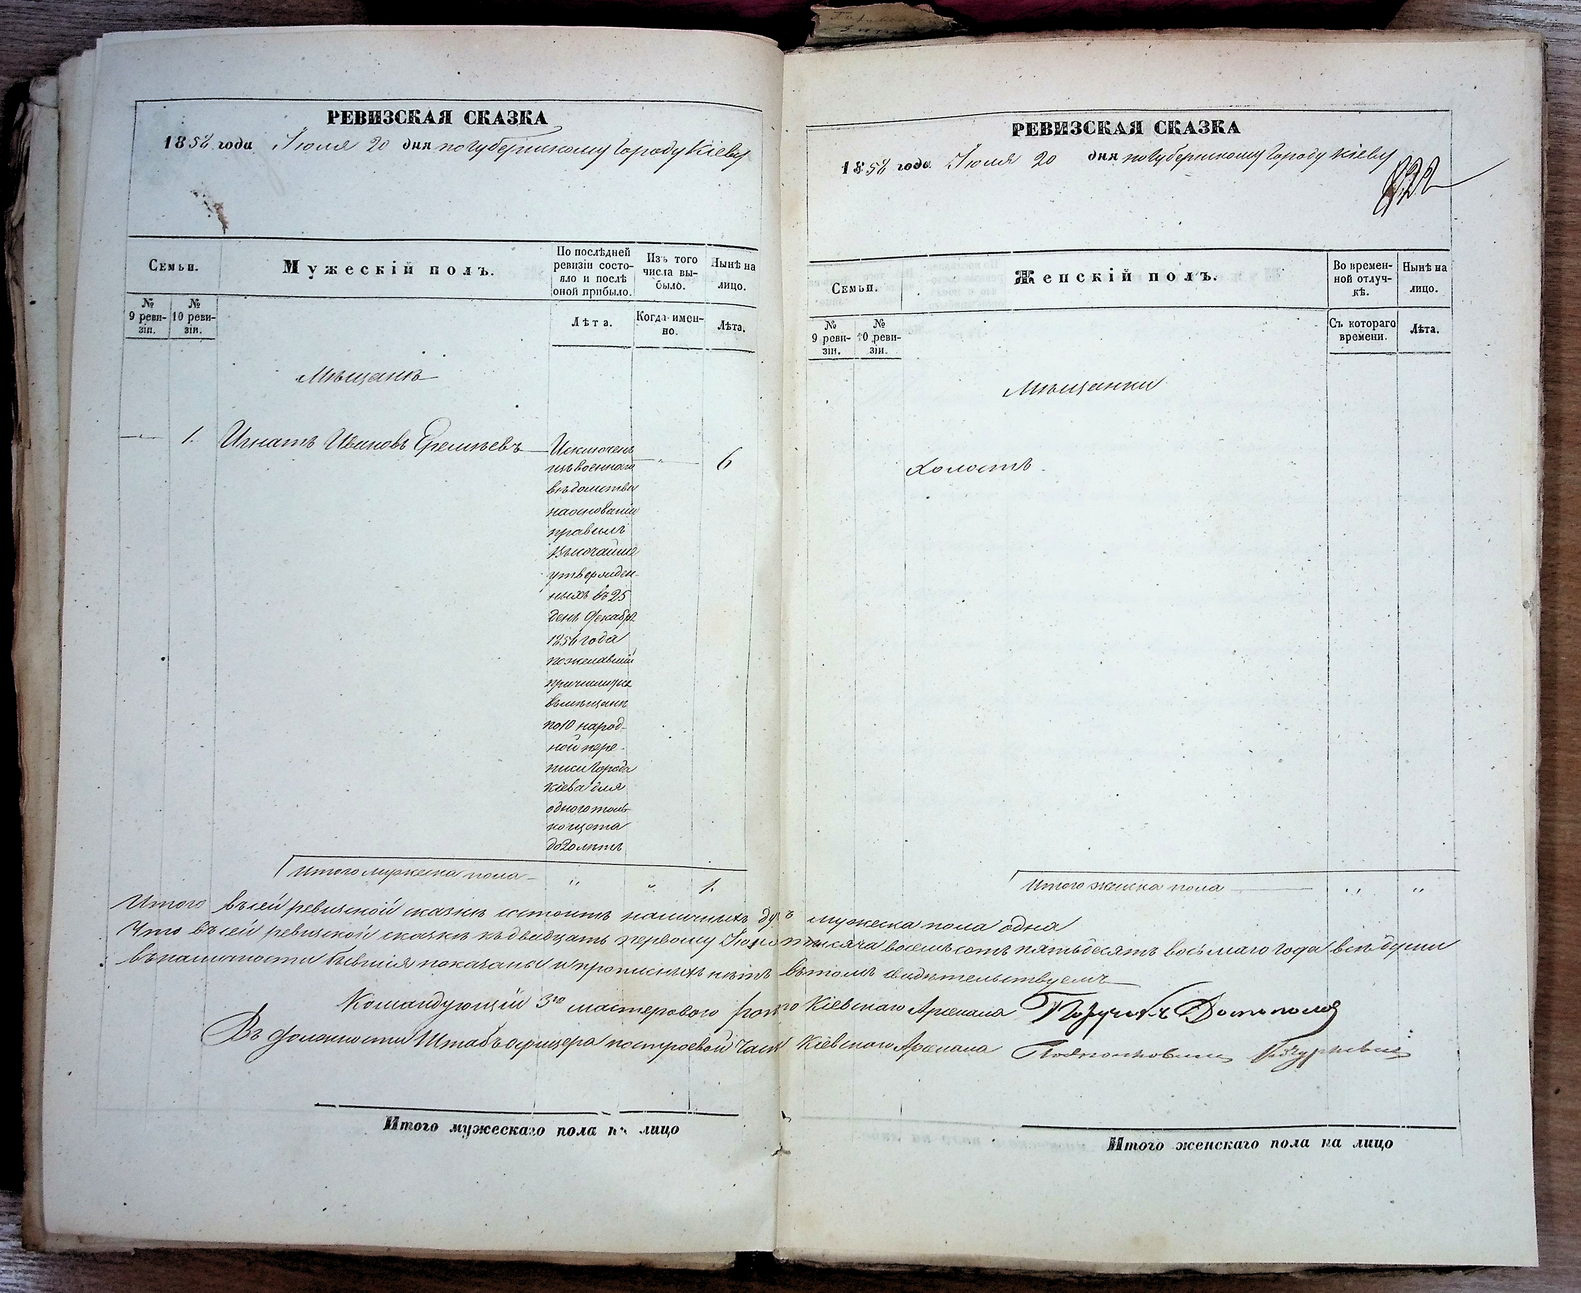 РЕВИЗСКАЯ СКАЗКА
1858 года Іюля 20 дня по Губернскому Городу Кіеву
Семьи.
Мужескій полъ.
По послѣдней ревизіи состояло и послѣ оной прибыло.
Изъ того числа выбыло.
Нынѣ на лицо.
№ 9 ревизіи.
№ 10 ревизіи.
Лѣта.
Когда именно.
Лѣта.
Мѣщанъ
1. Игнатъ Ивановъ Еремѣевъ
Исключенъ
изъ военнаго
вѣдомства
на основаніи
правилъ
Высочайше
утвержден-
ныхъ въ 25
день Декабря
1856 года
пожелавшій
въ мѣщане
по 10 народ-
ной пере-
писи Города
Кіева для
одного толь-
ко щета
до 20 лѣтъ
6
Итого мужеска пола „ „ 1.
РЕВИЗСКАЯ СКАЗКА
1858 года Іюля 20 дня по Губернскому Городу Кіеву
Семьи.
Женскій полъ.
Во временной отлучкѣ.
Нынѣ на лицо.
№ 9 ревизіи.
№ 10 ревизіи.
Съ котораго времени.
Лѣта.
Мѣщанки
Холостъ.
Итого женска пола „ „
Итого въ сей ревизской сказкѣ состоитъ наличныхъ душъ мужеска пола одна
Что въ сей ревизской сказкѣ къ двадцать первому Іюня тысяча восемьсотъ пятьдесятъ восьмаго года всѣ души
въ наличности бывшія показаны и прописныхъ нѣтъ въ томъ свидѣтельствуемъ
Командующій 3го мастерового роты Кіевскаго Арсенала Поручикъ
Въ должности Штабъ офицера по строевой части Кіевскаго Арсенала
Итого мужескаго пола на лицо
Итого женскаго пола на лицо